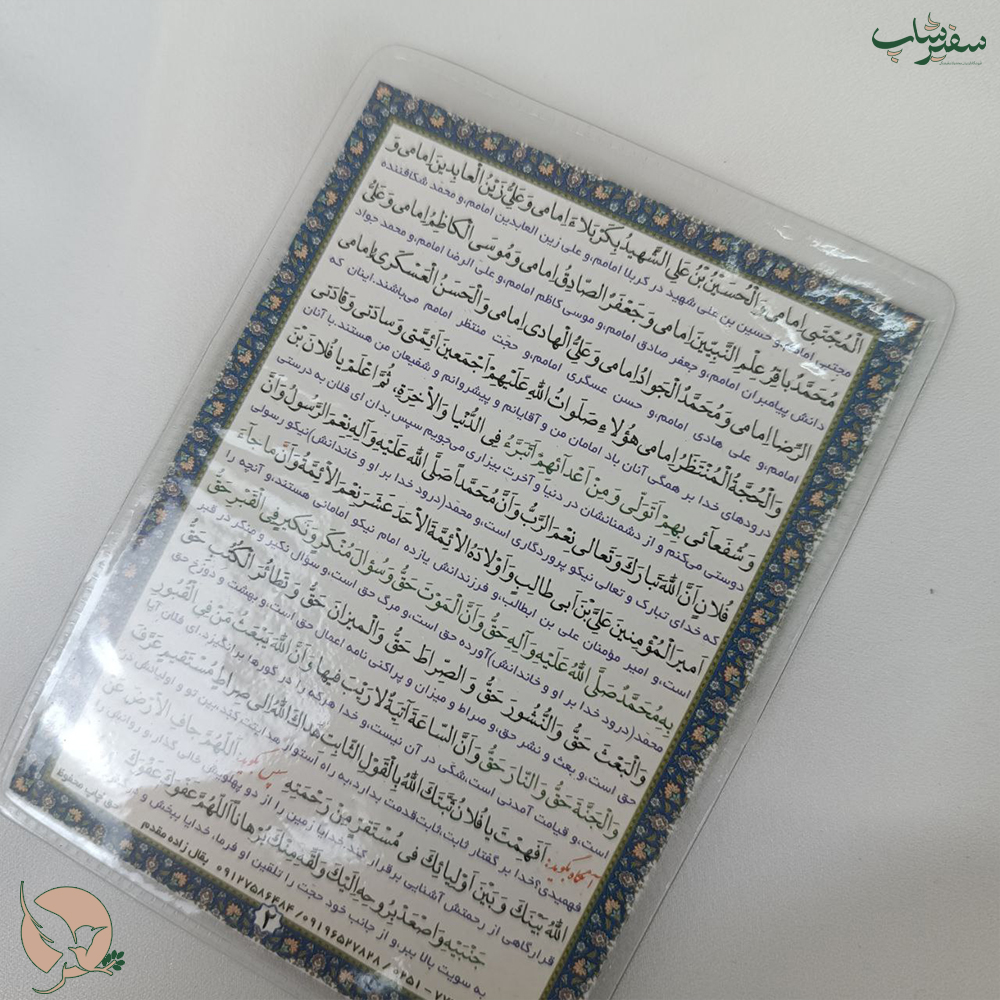 سفیر شاپ
الْمُجْتَبى اِمامى وَالْحُسَيْنُ بْنُ عَلِىٍّ الشَّهيدُ بِكَرْبَلاءَ اِمامى وَعَلِىٌّ زَيْنُ الْعابِدينَ اِمامى وَ
مجتبی امامم،و حسین بن علی شهید در کربلا امامم،و علی زین العابدین امامم،و محمد شکافننده
مُحَمَّدٌ باقِرُ عِلْمِ النَّبِيّينَ اِمامى وَ جَعْفَرٌ الصّادِقُ اِمامى وَ مُوسَى الْكاظِمُ اِمامى وَ عَلِىٌّ
دانش پیامبران امامم،و جعفر صادق امامم،و موسی کاظم امامم،و علی الرضا امامم،و محمد جواد
الرِّضا اِمامى وَ مُحَمَّدٌ الْجَوادُ اِمامى وَ عَلِىٌّ الْهادى اِمامى وَ الْحَسَنُ الْعَسْكَرِىُّ اِمامى
امامم،و علی هادی امامم،و حسن عسکری امامم،و حجت منتظر امامم می‌باشند.اینان که
وَالْحُجَّةُ الْمُنْتَظَرُ اِمامى هؤُلاءِ صَلَواتُ اللهِ عَلَيْهِمْ اَجْمَعينَ اَئِمَّتى وَ سادَتى وَ قادَتى
درودهای خدا بر همگی آنان باد امامان من و آقایانم و پیشروانم و شفیعان من هستند،با آنان
وَ شُفَعائى بِهِمْ اَتَوَلّى وَ مِنْ اَعْدائِهِمْ اَتَبَرَّءُ فِى الدُّنْيا وَالْاخِرَةِ، ثُمَّ اعْلَمْ يا فُلانَ بْنَ
دوستی می‌کنم و از دشمنانشان در دنیا و آخرت بیزاری می‌جویم سپس بدان ای فلان به درستی
فُلانٍ اَنَّ اللهَ تَبارَكَ وَ تَعالى نِعْمَ الرَّبُّ وَ اَنَّ مُحَمَّداً صَلَّى اللهُ عَلَيْهِ وَ آلِهِ نِعْمَ الرَّسُولُ وَ اَنَّ
که خدای تبارک و تعالی نیکو پروردگاری است،و محمد(درود خدا بر او و خاندانش)نیکو رسولی
اَميرَ الْمُؤْمِنينَ عَلِىَّ بْنَ اَبى طالِبٍ وَ اَوْلادَهُ الْاَئِمَّةَ الْاَحَدَ عَشَرَ نِعْمَ الْاَئِمَّةُ وَ اَنَّ ما جاءَ
است،و امیر مؤمنان علی بن ابیطالب،و فرزندانش یازده امام نیکو امامانی هستند،و آنچه را
بِهِ مُحَمَّدٌ صَلَّى اللهُ عَلَيْهِ وَ آلِهِ حَقٌّ وَ اَنَّ الْمَوْتَ حَقٌّ وَ سُؤالَ مُنْكَرٍ وَ نَكيرٍ فِى الْقَبْرِ حَقٌّ
محمد(درود خدا بر او و خاندانش)آورده حق است،و مرگ حق است،و سؤال نکیر و منکر در قبر
وَالْبَعْثَ حَقٌّ وَالنُّشُورَ حَقٌّ وَ الصِّراطَ حَقٌّ وَ الْميزانَ حَقٌّ وَ تَطائُرَ الْكُتُبِ حَقٌّ
حق است،و بعث و نشر حق،و صراط و میزان و پراکنی نامه اعمال حق است،و بهشت و دوزخ حق
وَ الْجَنَّةَ حَقٌّ وَالنّارَ حَقٌّ وَ اَنَّ السّاعَةَ آتِيَةٌ لا رَيْبَ فيها وَ اَنَّ اللهَ يَبْعَثُ مَنْ فِى الْقُبُورِ
است،و قیامت آمدنی است،شکی در آن نیست،و خدا هرکه را در گورها برانگیزد.ای فلان آیا
آنگاه بگوید: اَفَهِمْتَ يا فُلانُ ثَبَّتَكَ اللهُ بِالْقَوْلِ الثّابِتِ هَداكَ اللهُ اِلى صِراطٍ مُسْتَقيمٍ عَرَّفَ
فهمیدی؟خدا بر گفتار ثابت ثابت‌قدمت بدارد،به راه استوار هدایت کند،بین تو و اولیائش در
اللهُ بَيْنَكَ وَ بَيْنَ اَوْلِيائِكَ فى مُسْتَقَرٍّ مِنْ رَحْمَتِهِ پس بگوید: اَللّهُمَّ جافِ الْاَرْضَ عَنْ
قرارگاهی از رحمتش آشنایی برقرار کند.خدایا زمین را از دو پهلویش خالی گذار،و روانش را
جَنْبَيْهِ وَ اصْعَدْ بِرُوحِهِ اِلَيْكَ وَ لَقِّهِ مِنْكَ بُرْهاناً اَللّهُمَّ عَفْوَكَ عَفْوَكَ
به سویت بالا ببر،و از جانب خود حجت را تلقین او فرما، خدایا ببخش و
حق چاپ محفوظ
بقال زاده مقدم ۰۹۱۲۷۵۸۶۴۸۴ / ۰۹۱۹۶۵۲۷۸۲۸ / ۰۲۵۱ - ۷۷
۲
سفیر